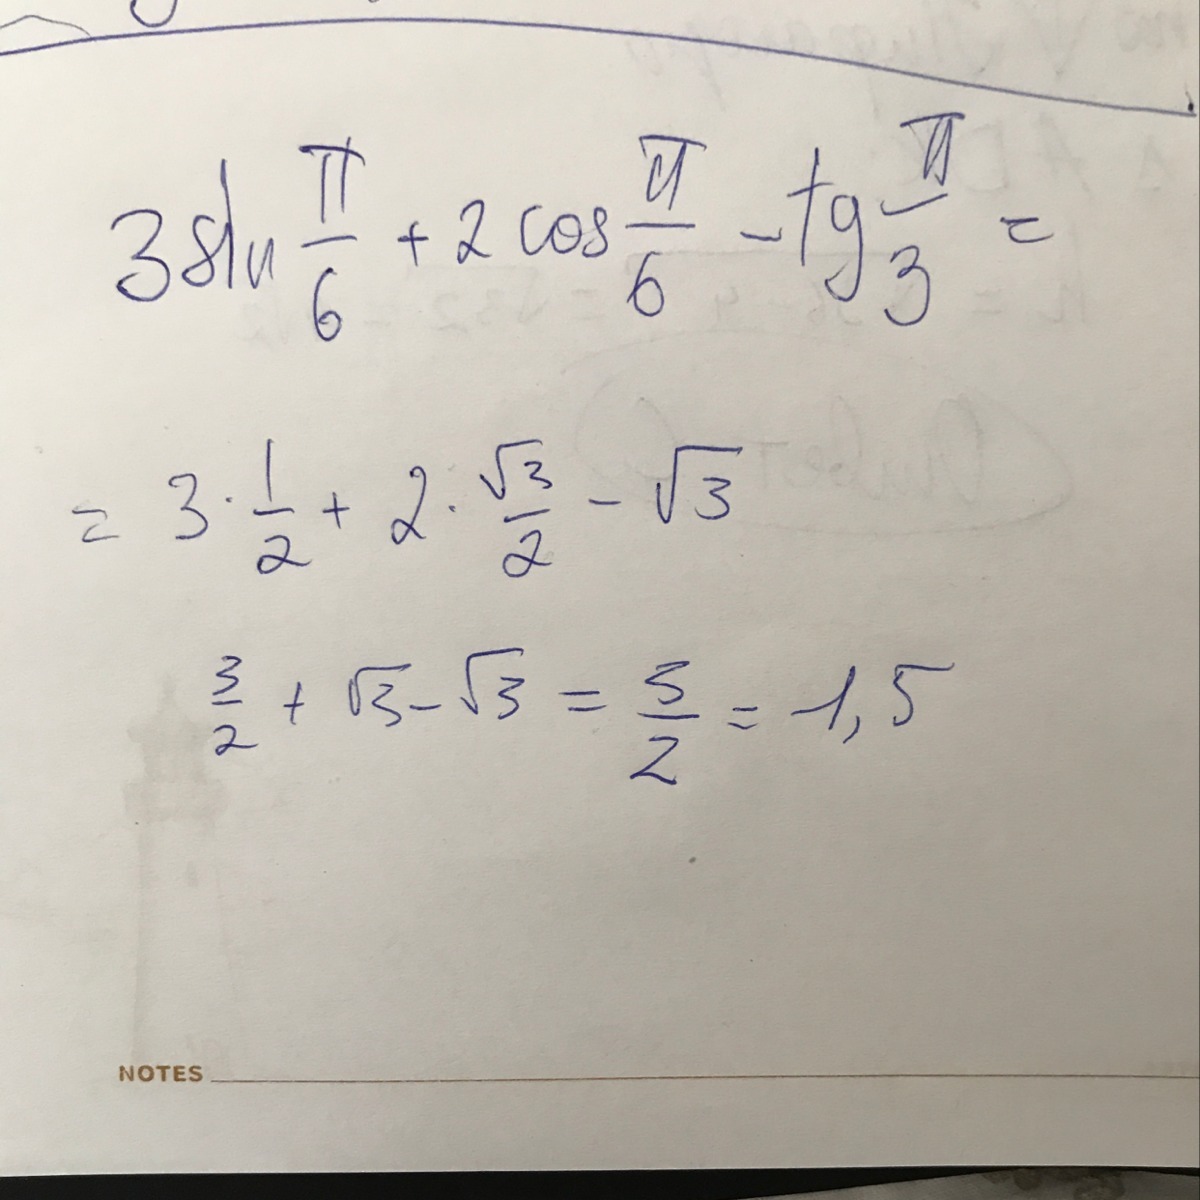 3 sin π/6 + 2 cos π/6 - tg π/3 =
= 3 · 1/2 + 2 · √3/2 - √3
3/2 + √3 - √3 = 3/2 = 1,5
NOTES